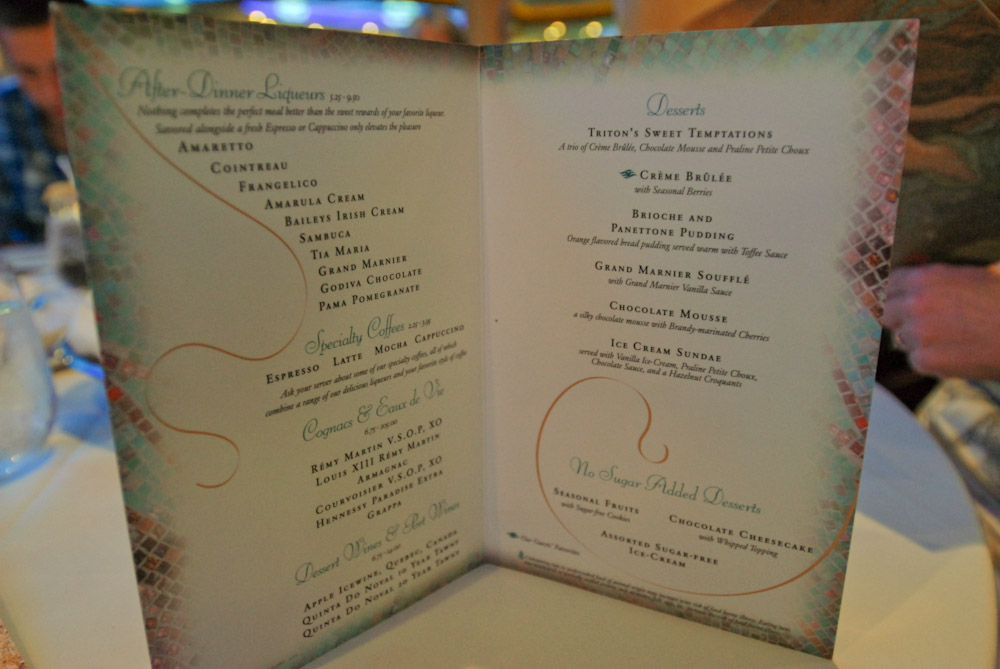 After-Dinner Liqueurs 5.25 - 9.50
Nothing completes the perfect meal better than the sweet rewards of your favorite liqueur.
Savored alongside a fresh Espresso or Cappuccino only elevates the pleasure
Amaretto
Cointreau
Frangelico
Amarula Cream
Baileys Irish Cream
Sambuca
Tia Maria
Grand Marnier
Godiva Chocolate
Pama Pomegranate
Specialty Coffees 2.25 - 3.95
Espresso Latte Mocha Cappuccino
Ask your server about some of our specialty coffees, all of which
combine a range of our delicious liqueurs and your favorite style of coffee
Cognacs & Eaux de Vie
6.75 - 105.00
Rémy Martin V.S.O.P, XO
Louis XIII Rémy Martin
Armagnac
Courvoisier V.S.O.P, XO
Hennessy Paradise Extra
Grappa
Dessert Wines & Port Wines
6.75 - 14.00
Apple Icewine, Quebec, Canada
Quinta Do Noval 10 Year Tawny
Quinta Do Noval 20 Year Tawny
Desserts
Triton's Sweet Temptations
A trio of Crème Brûlée, Chocolate Mousse and Praline Petite Choux
Crème Brûlée
with Seasonal Berries
Brioche and
Panettone Pudding
Orange flavored bread pudding served warm with Toffee Sauce
Grand Marnier Soufflé
with Grand Marnier Vanilla Sauce
Chocolate Mousse
a silky chocolate mousse with Brandy-marinated Cherries
Ice Cream Sundae
served with Vanilla Ice-Cream, Praline Petite Choux,
Chocolate Sauce, and a Hazelnut Croquants
No Sugar Added Desserts
Seasonal Fruits
with Sugar-free Cookies
Chocolate Cheesecake
with Whipped Topping
Assorted Sugar-free
Ice-Cream